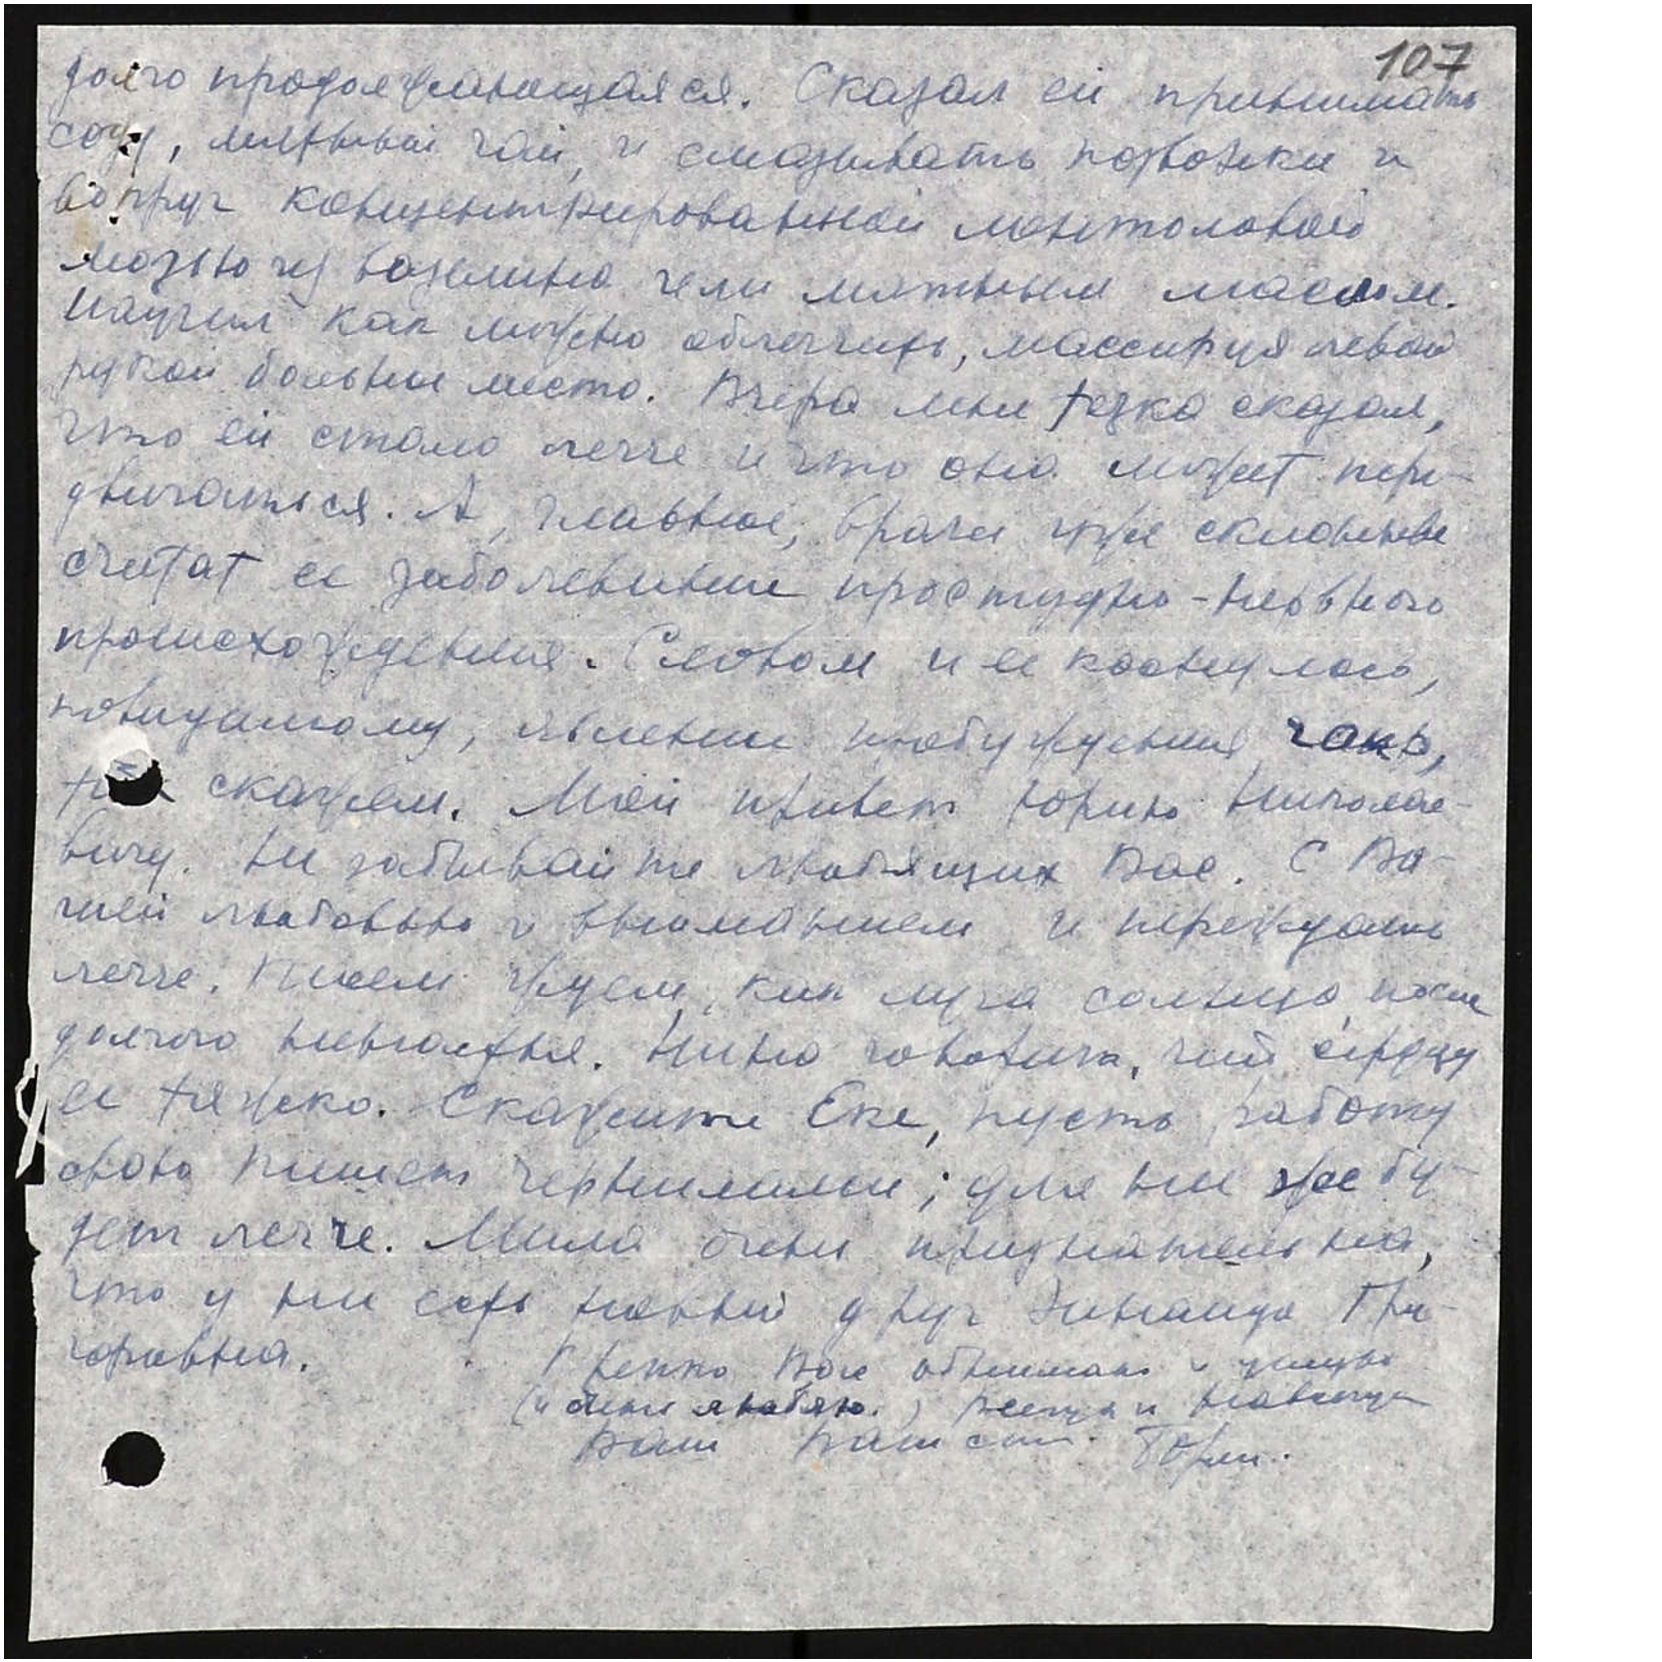 107
долго продолжающаяся. Сказал ей принимать
соду, мятный чай, и смазывать позвонки и
вокруг концентрированной ментоловой
мазью из вазелина или мятным маслом.
Научил как можно облегчить, массируя левой
рукой больное место. Вчера мне тезка сказал,
что ей стало легче и что она может пере-
двигаться. А, главное, врачи уже склонны
считат ее заболевание простудно-нервного
происхождения. Словом и ее коснулось,
повидимому, явление пробуждения чакр,
так скажем. Мой привет Юрию Николае-
вичу. Не забывайте любящих Вас. С Ва-
шей любовью и вниманием и переждать
легче. Писем ждем, как луча солнца после
долгого ненастья. Нина говорит, что сердцу
ее тяжко. Скажите Еке, пусть работу
свою пишет чернилами; для нее же бу-
дет легче. Мила очень признательна,
что у нее есть новый друг Зинаида Гри-
горьевна.
Крепко Вас обнимаю и целую
(и очень люблю.) всегда и навсегда
Ваш Ваш сын. Борис.